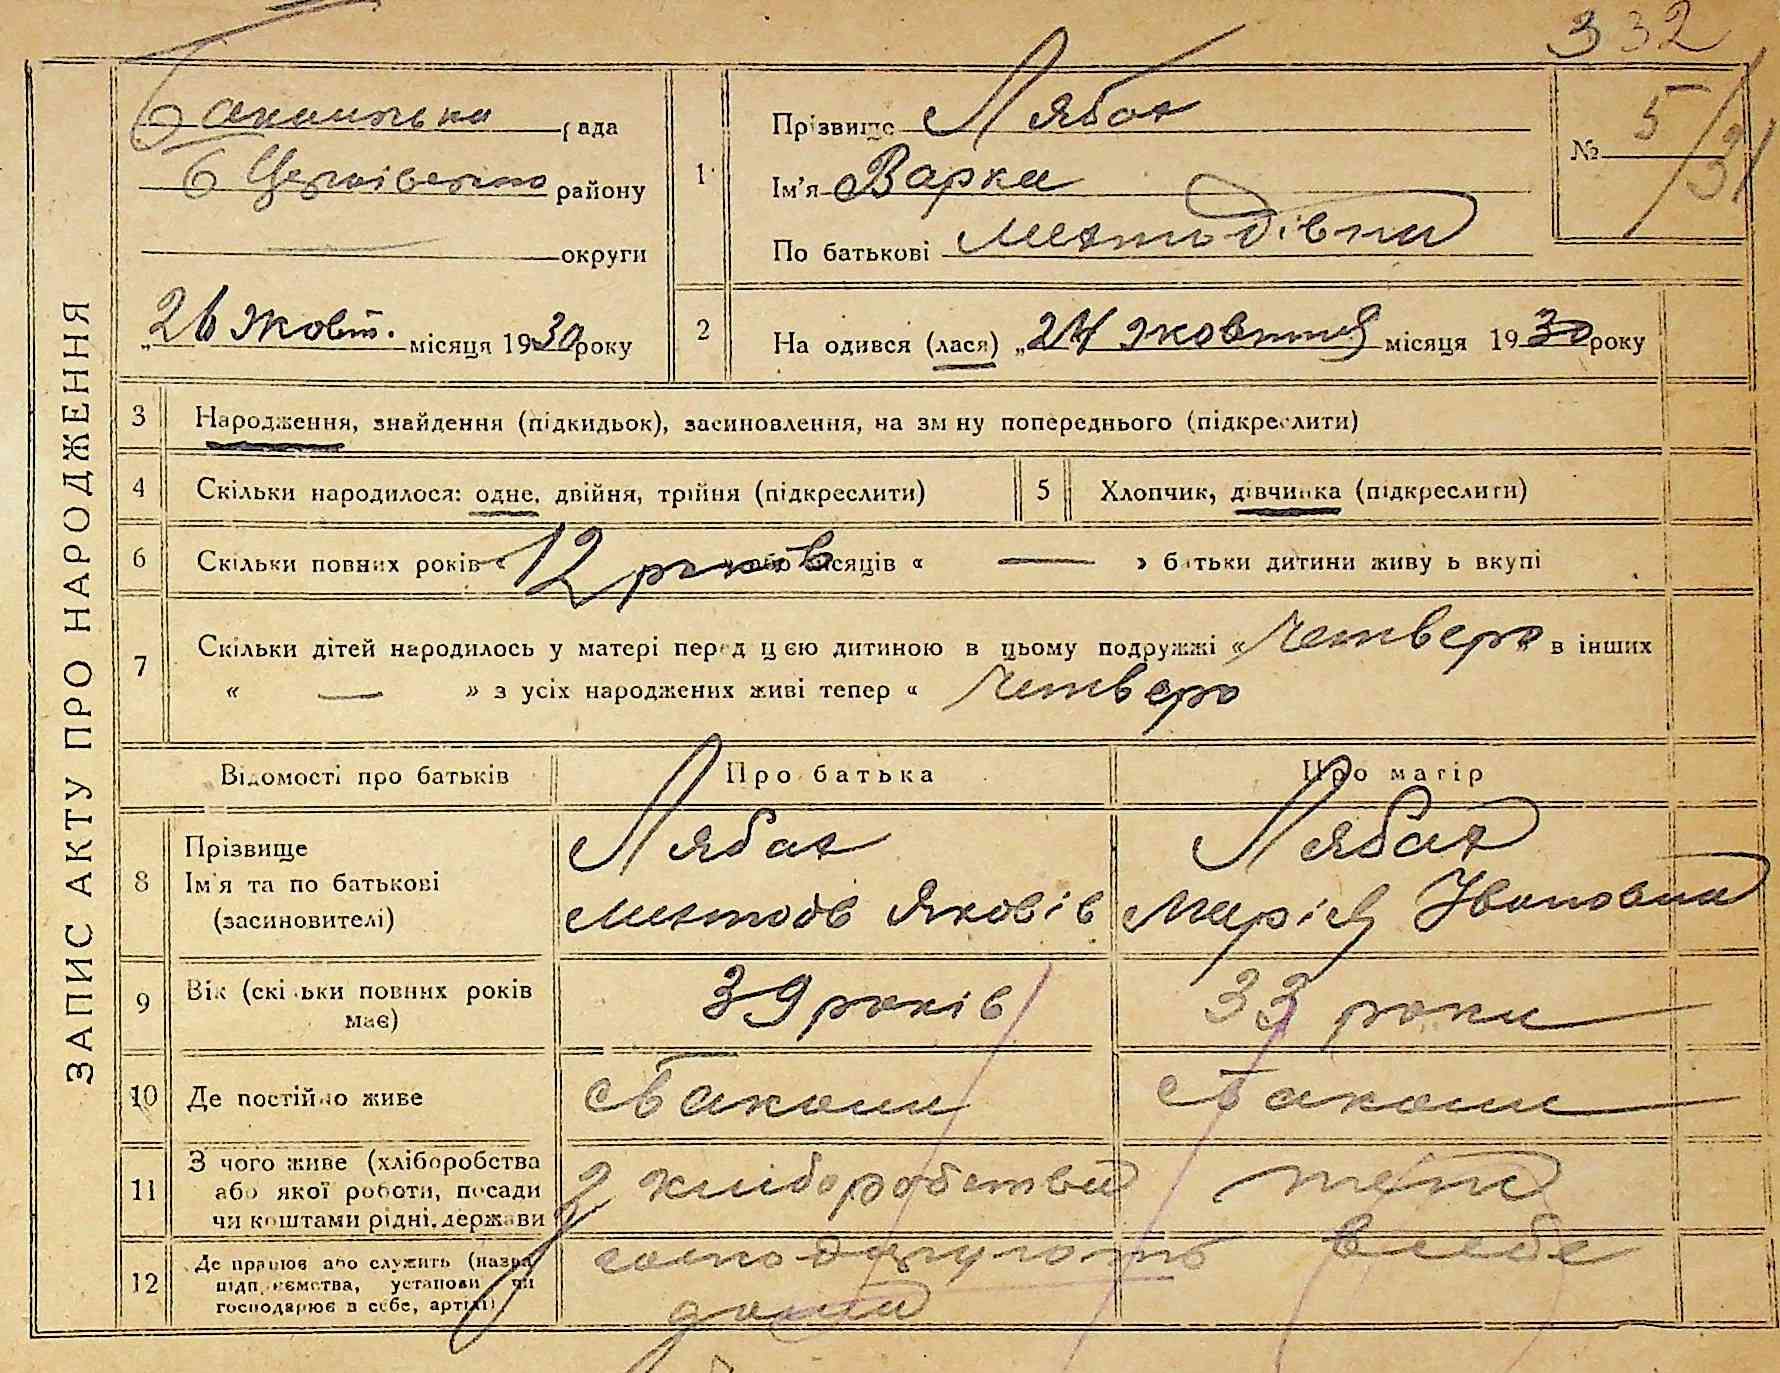 332
ЗАПИС АКТУ ПРО НАРОДЖЕННЯ
рада
району
округи
„26 жовт. місяця 1930 року
1 Прізвище Лябах
Ім'я Варка
По батькові Методівна
№ 5/31
2 На одився (лася) „24 жовтня місяця 1930 року
3 Народження, знайдення (підкидьок), засиновлення, на зм ну попереднього (підкреслити)
4 Скільки народилося: одне, двійня, трійня (підкреслити)
5 Хлопчик, дівчинка (підкреслити)
6 Скільки повних років « 12 років » або місяців « — » батьки дитини живу ь вкупі
7 Скільки дітей народилось у матері перед цією дитиною в цьому подружжі « Четверо в інших
« — » з усіх народжених живі тепер « Четверо
Відомості про батьків Про батька Про матір
8 Прізвище
Ім'я та по батькові
(засиновителі)
Лябах
Яковів
Лябах
Марія Івановна
9 Вік (скільки повних років
має)
39 років
33 роки
10 Де постійно живе
с Бакоши
с Бакоши
11 З чого живе (хліборобства
або якої роботи, посади
чи коштами рідні, держави
З хліборобства
теж
12 Де працює або служить (назва
підприємства, установи чи
господарює в себе, артілі)
господарують
дома
в себе